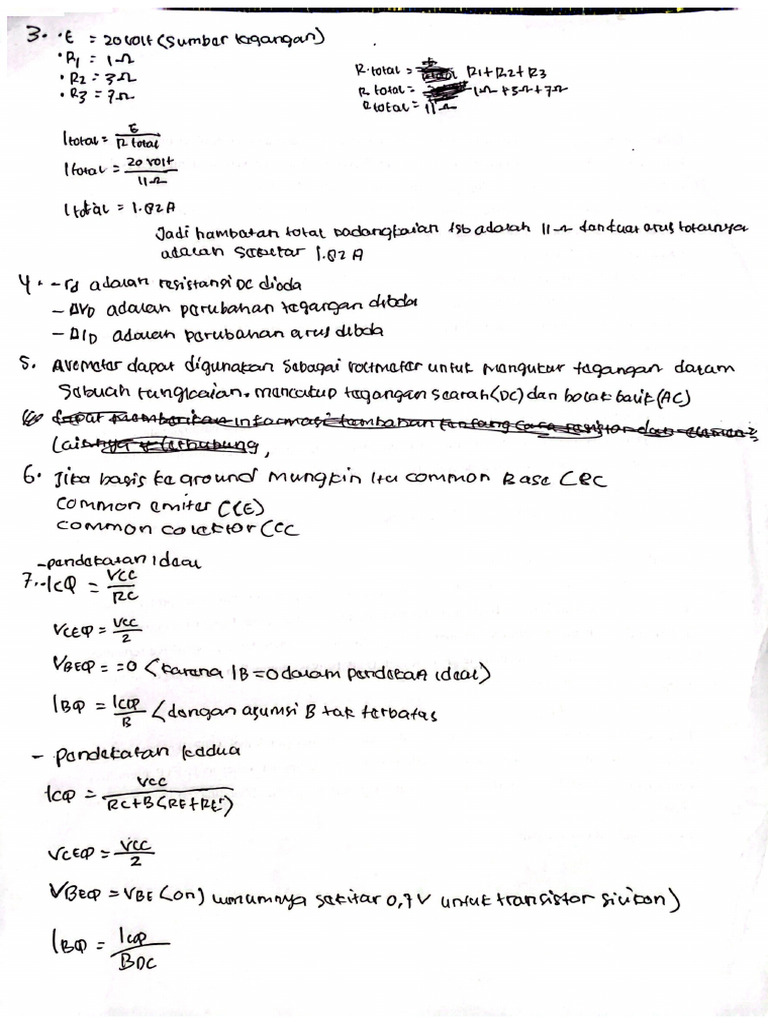 3. • E = 20 volt (sumber tegangan)
• R1 = 1Ω
• R2 = 3Ω
• R3 = 7Ω
R total = R1+R2+R3
R total = 1Ω+3Ω+7Ω
R total = 11Ω
I total = E / R total
I total = 20 volt / 11Ω
I total = 1.82A
Jadi hambatan total rangkaian tsb adalah 11Ω dan kuat arus totalnya
adalah sekitar 1.82A
4. - rd adalah resistansi DC dioda
- ΔVD adalah perubahan tegangan dioda
- ΔID adalah perubahan arus dioda
5. Avometer dapat digunakan sebagai voltmeter untuk mengukur tegangan dalam
sebuah rangkaian. mencakup tegangan searah (DC) dan bolak balik (AC)
6. Jika basis ke ground mungkin itu common Base CBC
common emiter C(E)
common colektor CCC
- pendekatan ideal
7. - ICQ = VCC / RC
VCEQ = VCC / 2
VBEQ = =0 (karena IB=0 dalam pendekatan ideal)
IBQ = ICQ / B (dengan asumsi B tak terbatas
- Pendekatan kedua
ICQ = VCC / RC+B(RE+RE')
VCEQ = VCC / 2
VBEQ = VBE (on) umumnya sekitar 0,7V untuk transistor silikon)
IBQ = ICQ / BDC